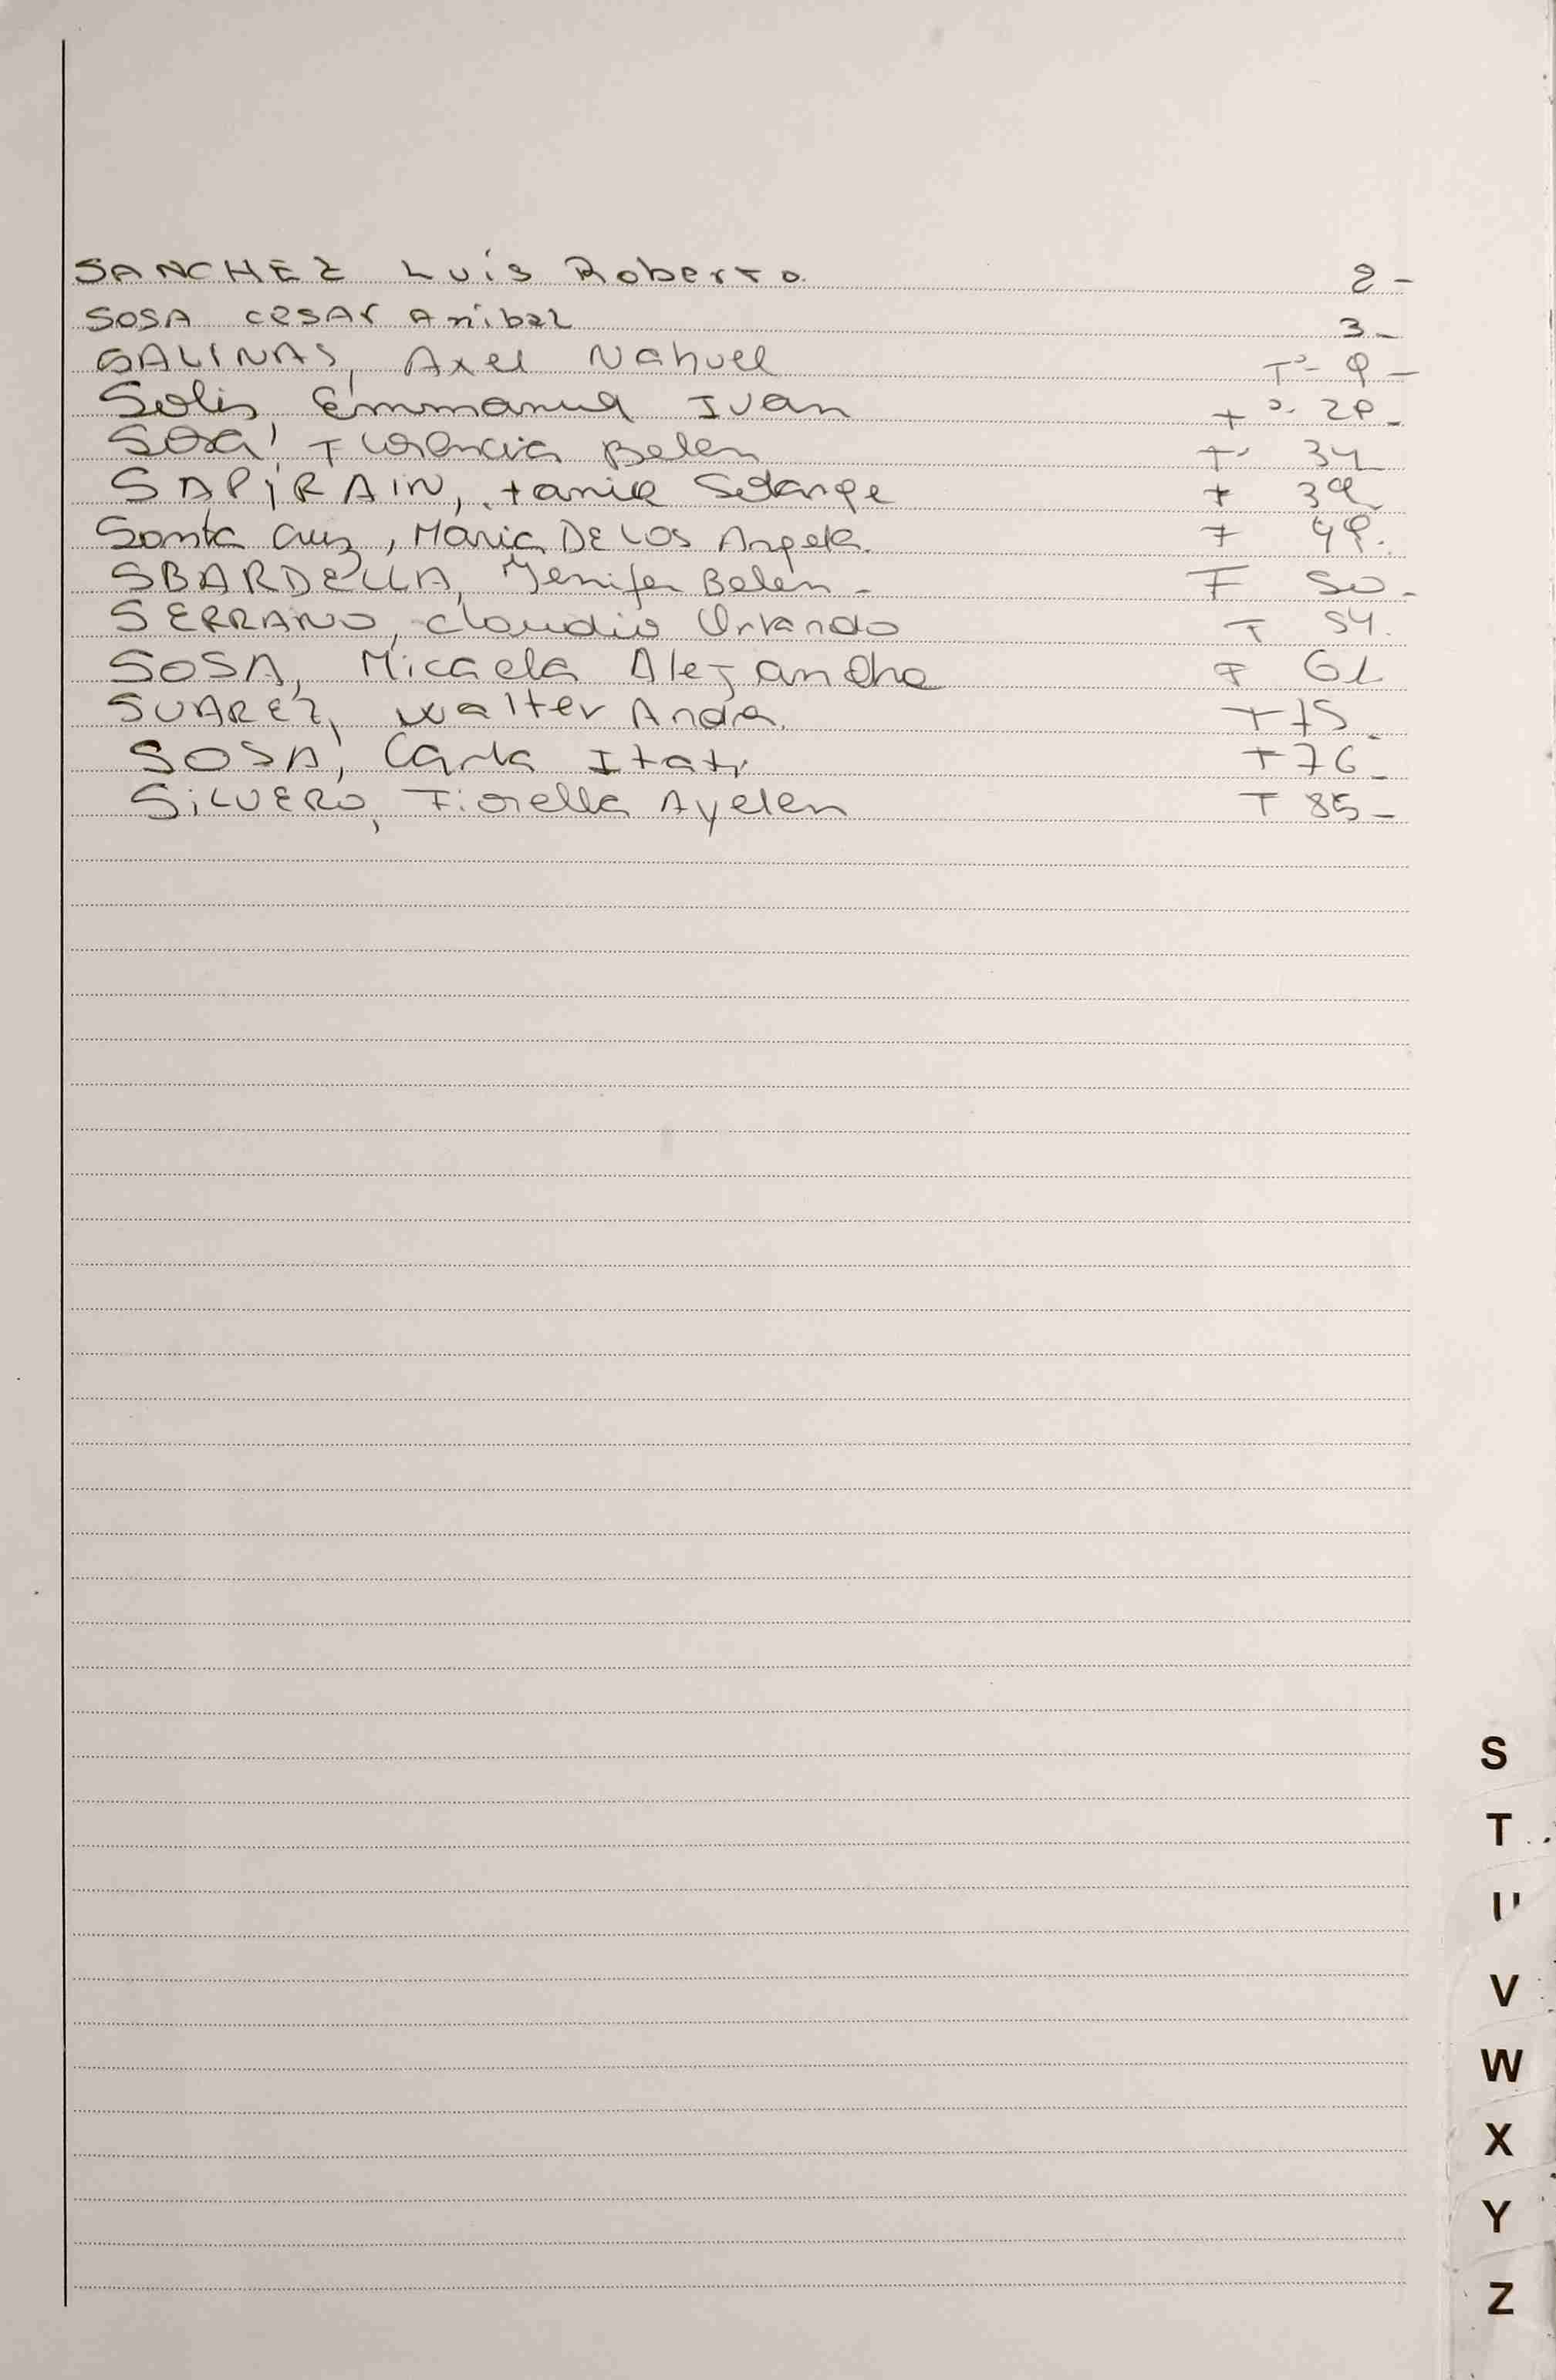 SANCHEZ Luis Roberto. 2-
SOSA cesar Anibal 3-
SALINAS, Axel Nahuel Tº- 9-
Solis, Emmanuel Ivan Tº. 29-
Sosa, Florencia Belen Tº 34
SAPIRAIN, tania Solange T 39
Santa Cruz, Maria DE LOS Angeles. T 49.
SBARDELLA, Yenifer Belen- F 50-
SERRANO, claudio Orlando T 54.
SOSA, Micaela Alejandra F 61
SUAREZ, walter Andres. T 75-
SOSA, Carla Itati T 76-
SILVERO, Fiorella Ayelen T 85-
S
T
U
V
W
X
Y
Z